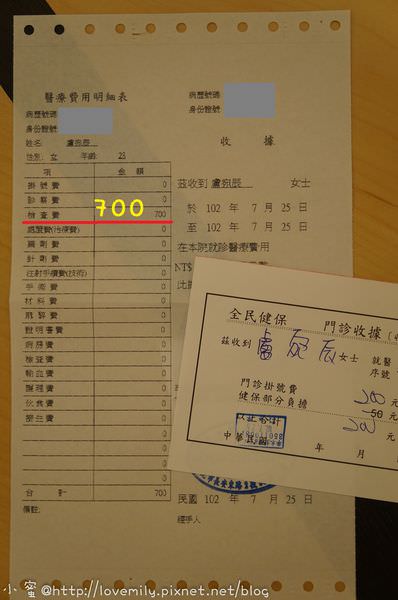 醫療費用明細表
病歷號碼
身份證號
姓名:
性別: 女 年齡: 23
項 金 額
掛號費 0
診察費 0
檢查費 700
700
處置費(治療費) 0
藥劑費 0
針劑費 0
注射手續費(技術) 0
手術費 0
材料費 0
麻醉費 0
證明書費 0
病房費 0
檢查費 0
輸血費 0
護理費 0
伙食費 0
衛生費 0
合 計 700
備註:
病歷號碼:
身份證號:
收 據
茲收到 女士
於 102 年 7 月 25 日
至 102 年 7 月 25 日
在本院就診醫療費用
NT$
此據
民國 102 年 7 月 25 日
經手人
全民健保 門診收據
茲收到 盧 辰 女士 就醫
序號
門診掛號費 200 元
健保部分負擔 50 元
以上合計 200 元
中華民國 年 月
小蜜@http://lovemily.pixnet.net/blog